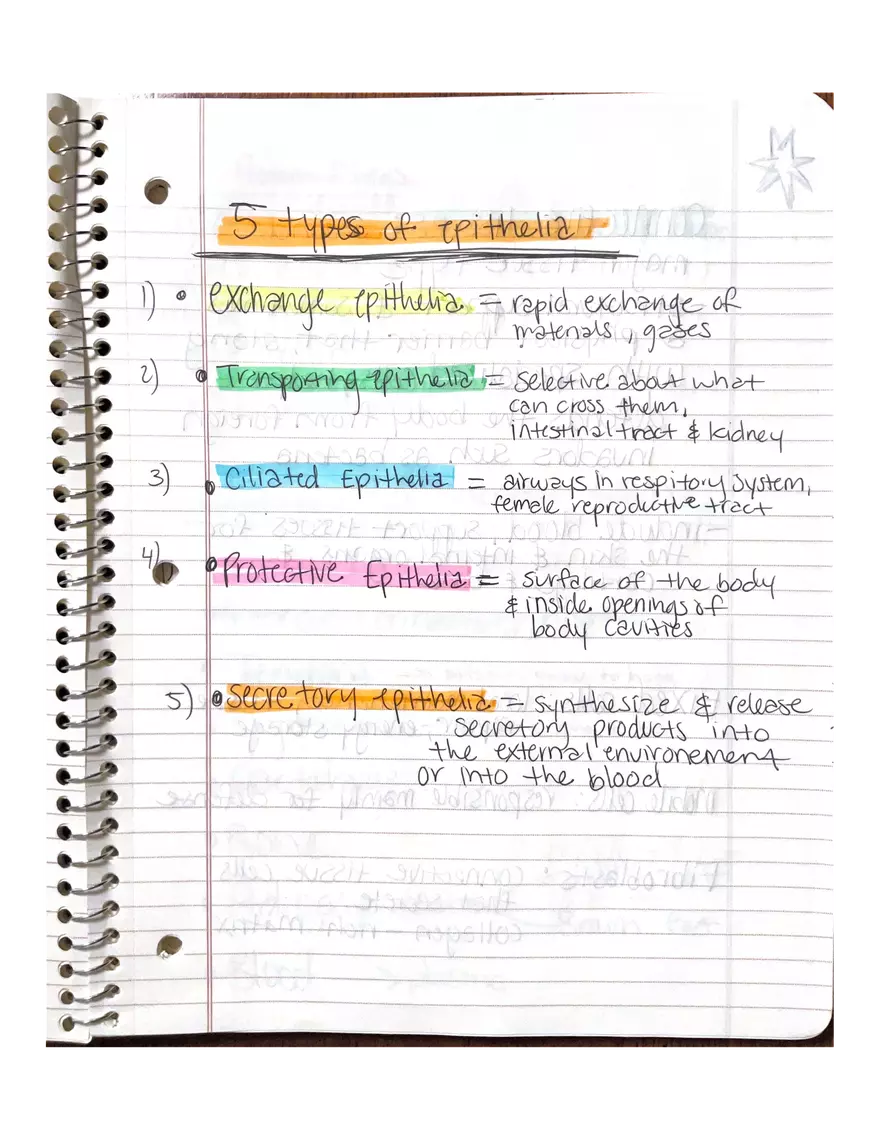 5 types of epithelia
1) • exchange epithelia = rapid exchange of
materials, gases
2) • Transporting epithelia = selective about what
can cross them,
intestinal tract & kidney
3) • Ciliated Epithelia = airways in respitory system,
female reproductive tract
4) • Protective Epithelia = surface of the body
& inside openings of
body cavities
5) • secretory epithelia = synthesize & release
secretory products into
the external environement
or into the blood